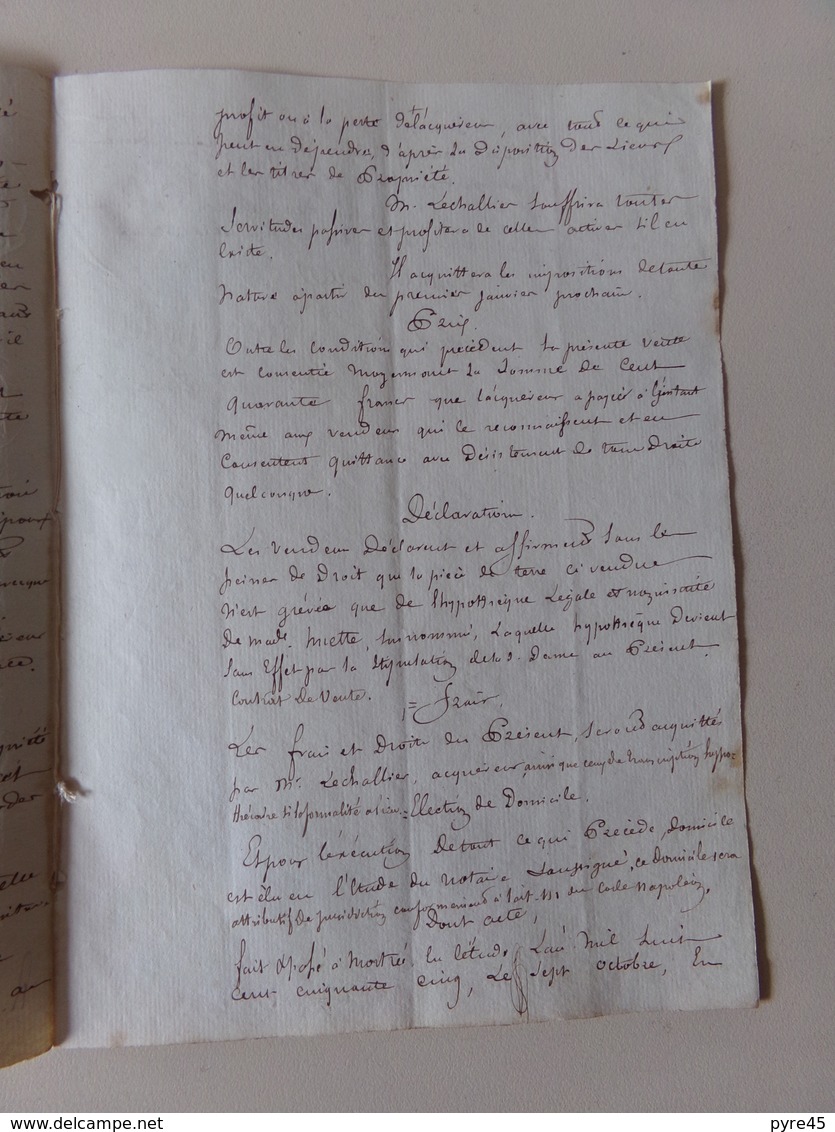 profit ou à la perte de l'acquéreur, avec tout ce qui
peut en dépendre, d'après la Disposition Des Lieux
et les titres de Propriété.
M. Lechallier souffrira toutes
Servitudes passives et profitera de celles actives s'il en
Existe.
Il acquittera les impositions de toute
Nature à partir du premier janvier prochain.
Prix.
Outre les conditions qui précèdent la présente vente
est consentie moyennant la Somme de Cent
quarante francs que l'acquéreur a payée à l'instant
même aux vendeurs qui le reconnaissent et en
Consentent quittance avec Désistement de tous Droits
quelconque.
Déclaration.
Les vendeurs Déclarent et affirment sous les
peines de Droit que la pièce de terre ci vendue
N'est grévée que de l'hypothèque Légale et
De made. Miette, susnommé, Laquelle hypothèque Devient
sans Effet par la Stipulation de la d. Dame au Présent
Contrat De Vente. = Frais.
Les frais et Droits du Présent, seront acquittés
par Mr. Lechallier, acquéreur, ainsi que ceux de transcription
si la formalité a lieu = Election de Domicile.
Et pour l'éxécution De tout ce qui Précède, domicile
est élu en l'Etude du Notaire Soussigné, ce Domicile sera
attributif De juridiction conformément à l'art. 111 du Code Napoléon.
Dont acte,
fait & passé à Mortrée En l'étude, L'an Mil huit
cent cinquante cinq, Le sept octobre, En
www.delcampe.net
pyre45